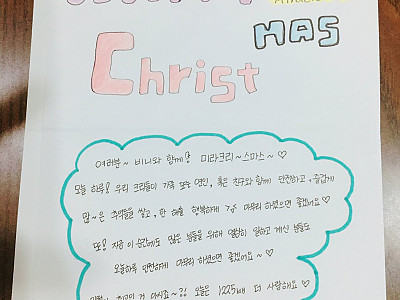 MAS
Christ
여러분~ 비니와 함께하는 미라크리~스마스~♡
오늘 하루! 우리 크라들이 가족 또는 연인, 혹은 친구와 함께 안전하고, 즐겁게
많~은 추억들을 쌓고, 한 해를 행복하게 마무리 하셨으면 좋겠어요♡
또! 지금 이 순간에도 많은 분들을 위해 열심히 일하고 계신 분들도
오늘하루 안전하게 마무리 하셨으면 좋겠어요~♡
오늘은 1225배 더 사랑해요♡